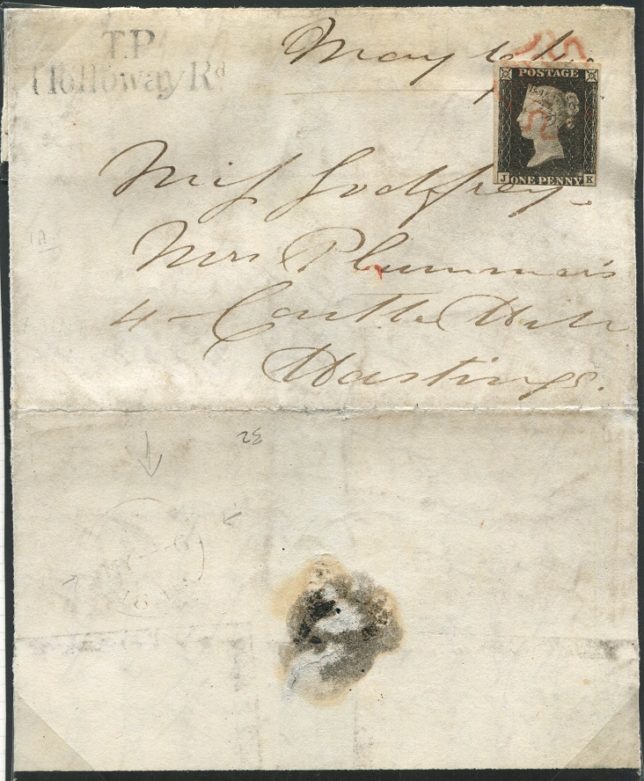 T.P
Holloway Rd
May
POSTAGE
J ONE PENNY K
Miss Godfrey
Mrs Plummer's
4 Castle Hill
Hastings.